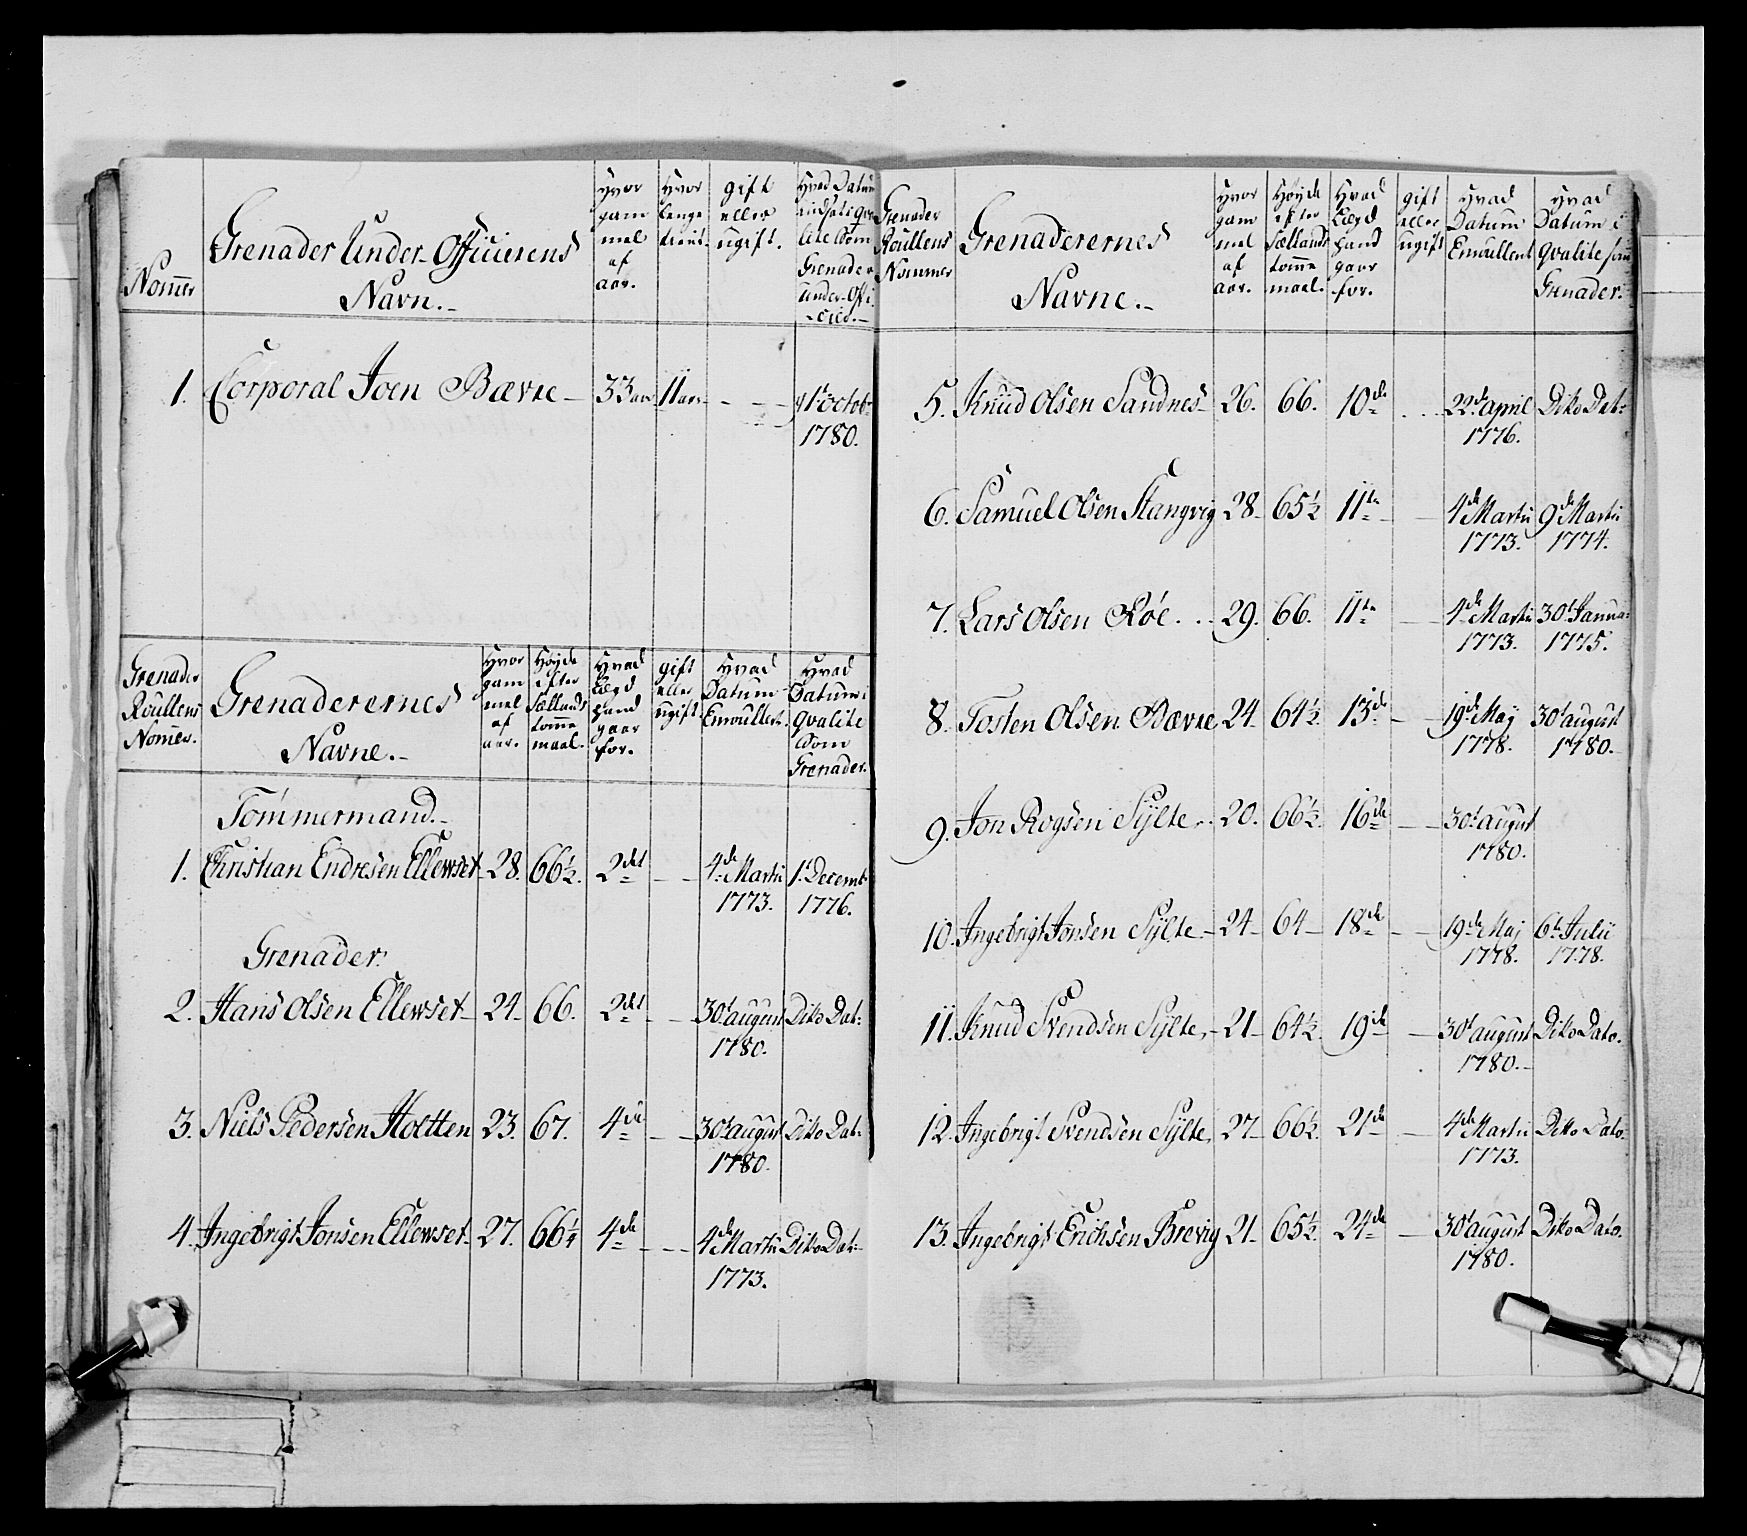 Nommer
Grenader Under-Officierens
Navn.-
Hvor
gam
mel
af
aar.
Hvor
lenge
tient.
gift
eller
ugift.
Hvad Datum
lite Som
Grenader
Under-Offi
-cier.-
1. Corporal Joen Bævre - 33 aar. 11 aar. - - - 1t octobr
1780.
Grenader
Roullens
Nomer.
Grenaderernes
Navne.-
Hvor
gam
mel
af
aar.
Højde
efter
Sællands
tomme
maal.
Hvad
Lægd
hand
gaar
for.
gift
eller
ugift.
Hvad
Datum
Enroullert.
Hvad
Datum i
qvalite
Som
Grenader.
Tömmermand.-
1. Christian Endresen Ellewset 28. 66½. 2det - - 4de Martii 1t Decemb:
1773. 1776.
Grenader.
2. Hans Olsen Ellewset- 24. 66. 2det - - 30t august Dito Dat:
1780.
3. Niels Pedersen Holtten 23. 67. 4de - - 30t august Dito Dat:
1780.
4. Ingebrigt Jonsen Ellewset- 27. 66¼ 4de - - - 4de Martii Dito Dat:-
1773.
Grenader
Roullens
Nommer
Grenaderernes
Navne.-
Hvor
gam
mel
af
aar.
Højde
efter
Sællands
tomme
maal.
Hvad
Lægd
hand
gaar
for.
gift
eller
ugift
Hvad
Datum
Enroullert
Hvad
Datum i
qvalite som
Grenader.
5. Knud Olsen Sandnes- 26. 66. 10de . . . 22de april Dito Dat:
1776.
6. Samuel Olsen Stangvig 28- 65½ 11te - - 4de Martii 9de Martii
1773. 1774.
7. Lars Olsen Röe. . . 29. 66. 11te - - 4de Martii 30t Janua:
1773. 1775.
8. Tosten Olsen Bævre 24. 64½. 13de - - 19de Maÿ 30t august
1778. 1780.-
9. Jon Rogsen Sÿlte. . 20. 66½. 16de - - 30t august
1780.
10. Ingebrigt Jonsen Sÿlte.- 24- 64- 18de - - 19de Maj 6te Julii
1778. 1778.
11. Knud Svendsen Sylte,- 21- 64½. 19de - 30t august Dito Dato.
1780.-
12. Ingebrigt Svendsen Sylte, 27- 66½. 21de - 4de Martii Dito Dato-
1773.
13. Ingebrigt Erichsen Brevig 21- 65½. 24de - 30t august Dito Dato.
1780.